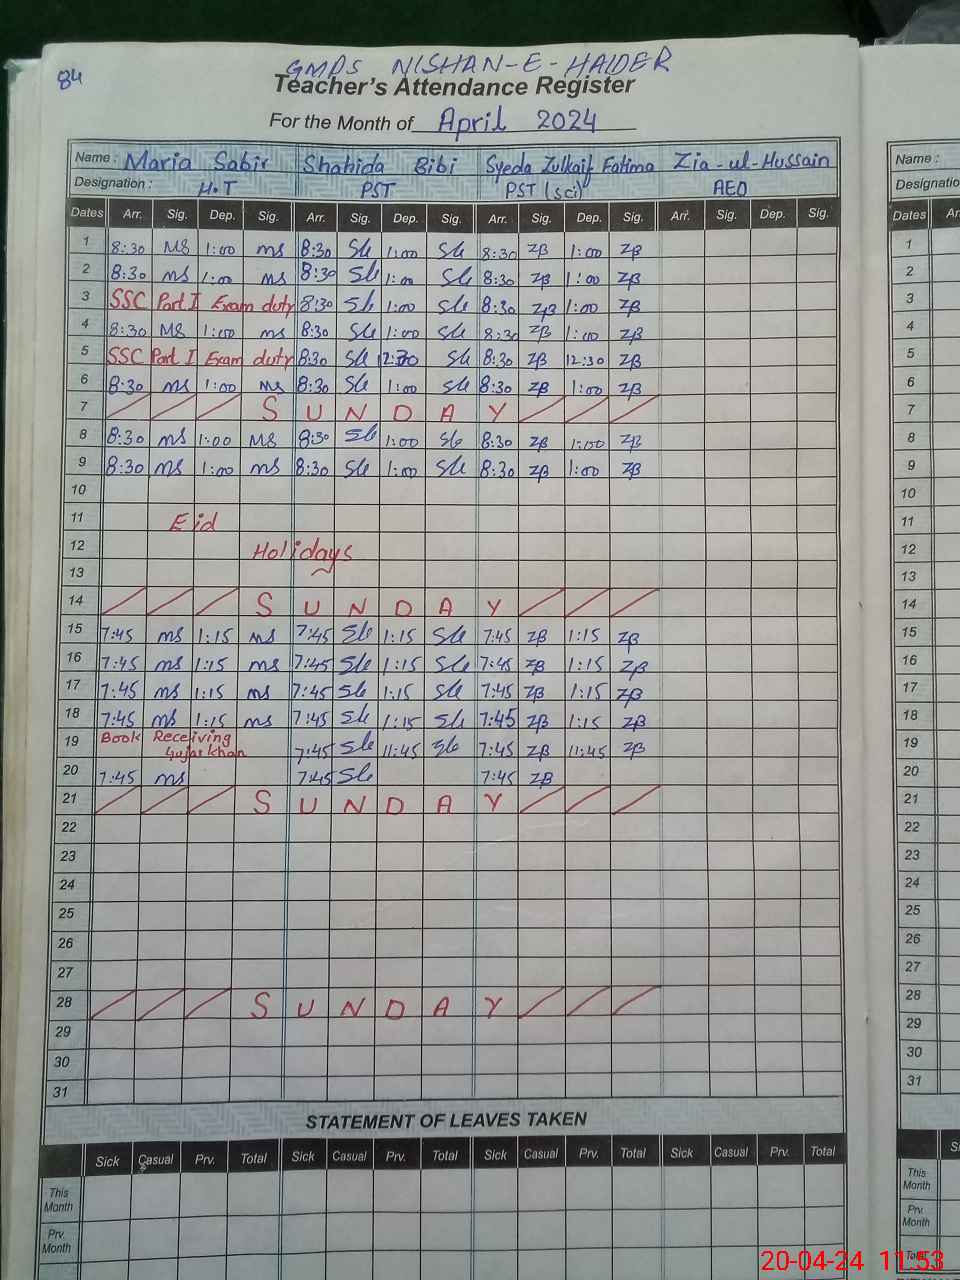 84
GMPS NISHAN-E-HAIDER
Teacher's Attendance Register
For the Month of April 2024
Name : Maria Sabir Shahida Bibi Syeda Zulkaif Fatima Zia-ul-Hussain Name :
Designation : H.T PST PST (sci) AEO Designatio
Dates Arr. Sig. Dep. Sig. Arr. Sig. Dep. Sig. Arr. Sig. Dep. Sig. Arr. Sig. Dep. Sig. Dates Ar
1 8:30 MS 1:00 ms 8:30 Sle 1:00 Sle 8:30 ZB 1:00 ZB 1
2 8:30 ms 1:00 ms 8:30 Sle 1:00 Sle 8:30 ZB 1:00 ZB 2
3 SSC Part I Exam duty 8:30 Sle 1:00 Sle 8:30 ZB 1:00 ZB 3
4 8:30 MS 1:00 ms 8:30 Sle 1:00 Sle 8:30 ZB 1:00 ZB 4
5 SSC Part I Exam duty 8:30 Sle 12:30 Sle 8:30 ZB 12:30 ZB 5
6 8:30 ms 1:00 Ms 8:30 Sle 1:00 Sle 8:30 ZB 1:00 ZB 6
7 S U N D A Y 7
8 8:30 ms 1:00 MS 8:30 Sle 1:00 Sle 8:30 ZB 1:00 ZB 8
9 8:30 ms 1:00 ms 8:30 Sle 1:00 Sle 8:30 ZB 1:00 ZB 9
10 10
11 Eid 11
12 Holidays 12
13 13
14 S U N D A Y 14
15 7:45 ms 1:15 ms 7:45 Sle 1:15 Sle 7:45 ZB 1:15 ZB 15
16 7:45 ms 1:15 ms 7:45 Sle 1:15 Sle 7:45 ZB 1:15 ZB 16
17 7:45 ms 1:15 ms 7:45 Sle 1:15 Sle 7:45 ZB 1:15 ZB 17
18 7:45 ms 1:15 ms 7:45 Sle 1:15 Sle 7:45 ZB 1:15 ZB 18
19 Book Receiving Gujar khan 7:45 Sle 11:45 Sle 7:45 ZB 11:45 ZB 19
20 7:45 ms 7:45 Sle 7:45 ZB 20
21 S U N D A Y 21
22 22
23 23
24 24
25 25
26 26
27 27
28 S U N D A Y 28
29 29
30 30
31 31
STATEMENT OF LEAVES TAKEN
Sick Casual Prv. Total Sick Casual Prv. Total Sick Casual Prv. Total Sick Casual Prv. Total Si
This Month This Month
Prv. Month Prv. Month
Total
20-04-24 11:53